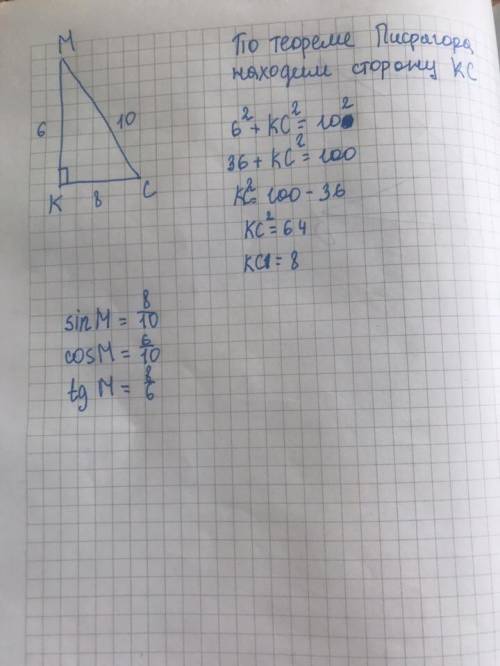 По теореме Пифагора
находим сторону КС
M
6
10
K
8
C
6² + KC² = 10²
36 + KC² = 100
KC² = 100 - 36
KC² = 64
KC = 8
sin M = 8/10
cos M = 6/10
tg M = 8/6